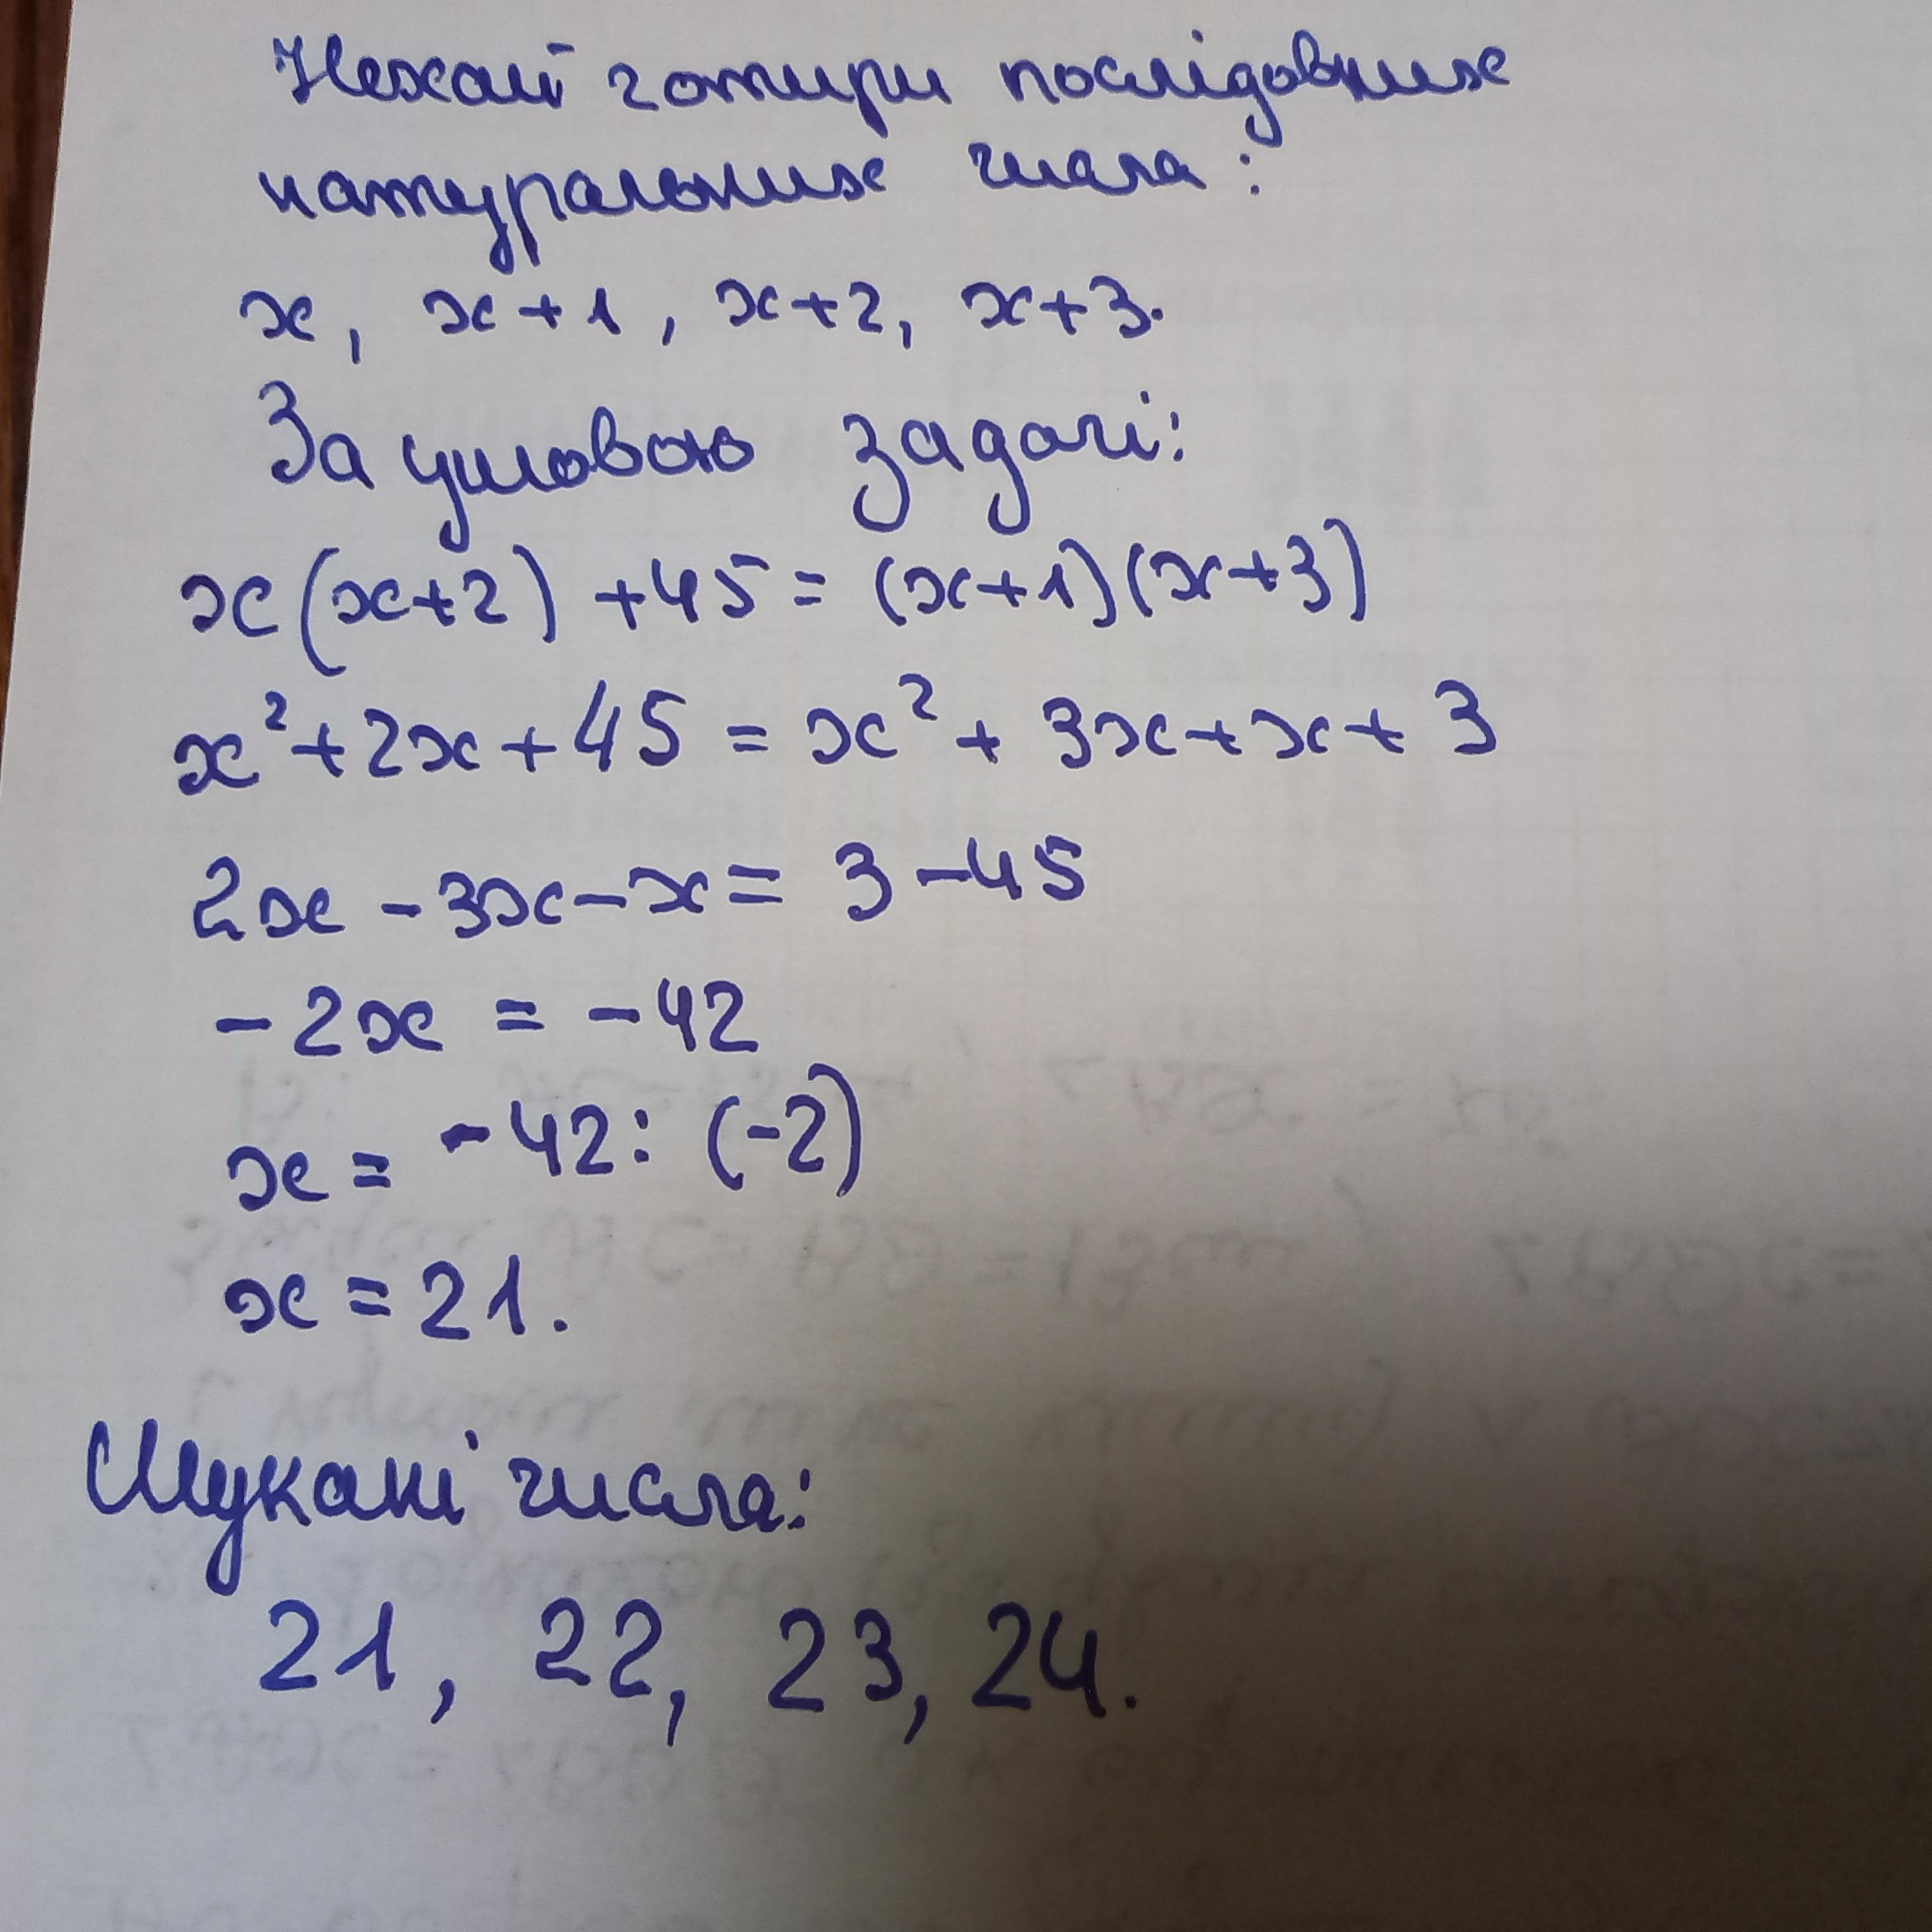 Нехай чотири послідовних
натуральних числа:
x, x+1, x+2, x+3.
За умовою задачі:
x(x+2) +45= (x+1)(x+3)
x²+2x+45 = x²+ 3x+x+3
2x -3x-x= 3-45
-2x = -42
x = -42: (-2)
x = 21.
Шукані числа:
21, 22, 23, 24.